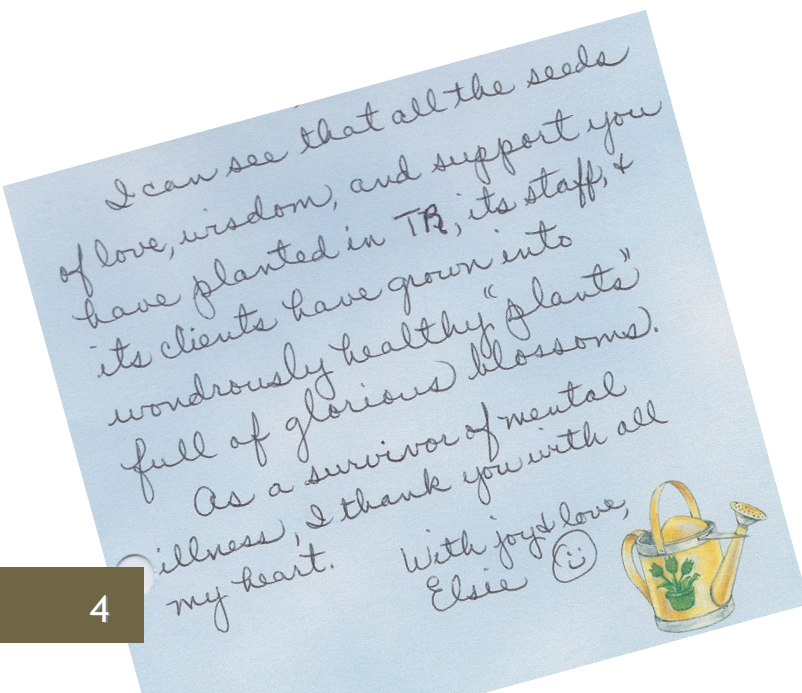 I can see that all the seeds
of love, wisdom, and support you
have planted in TR, its staff, &
its clients have grown into
wondrously healthy "plants"
full of glorious blossoms.
As a survivor of mental
illness, I thank you with all
my heart.
With joy & love,
Elsie ☺
4